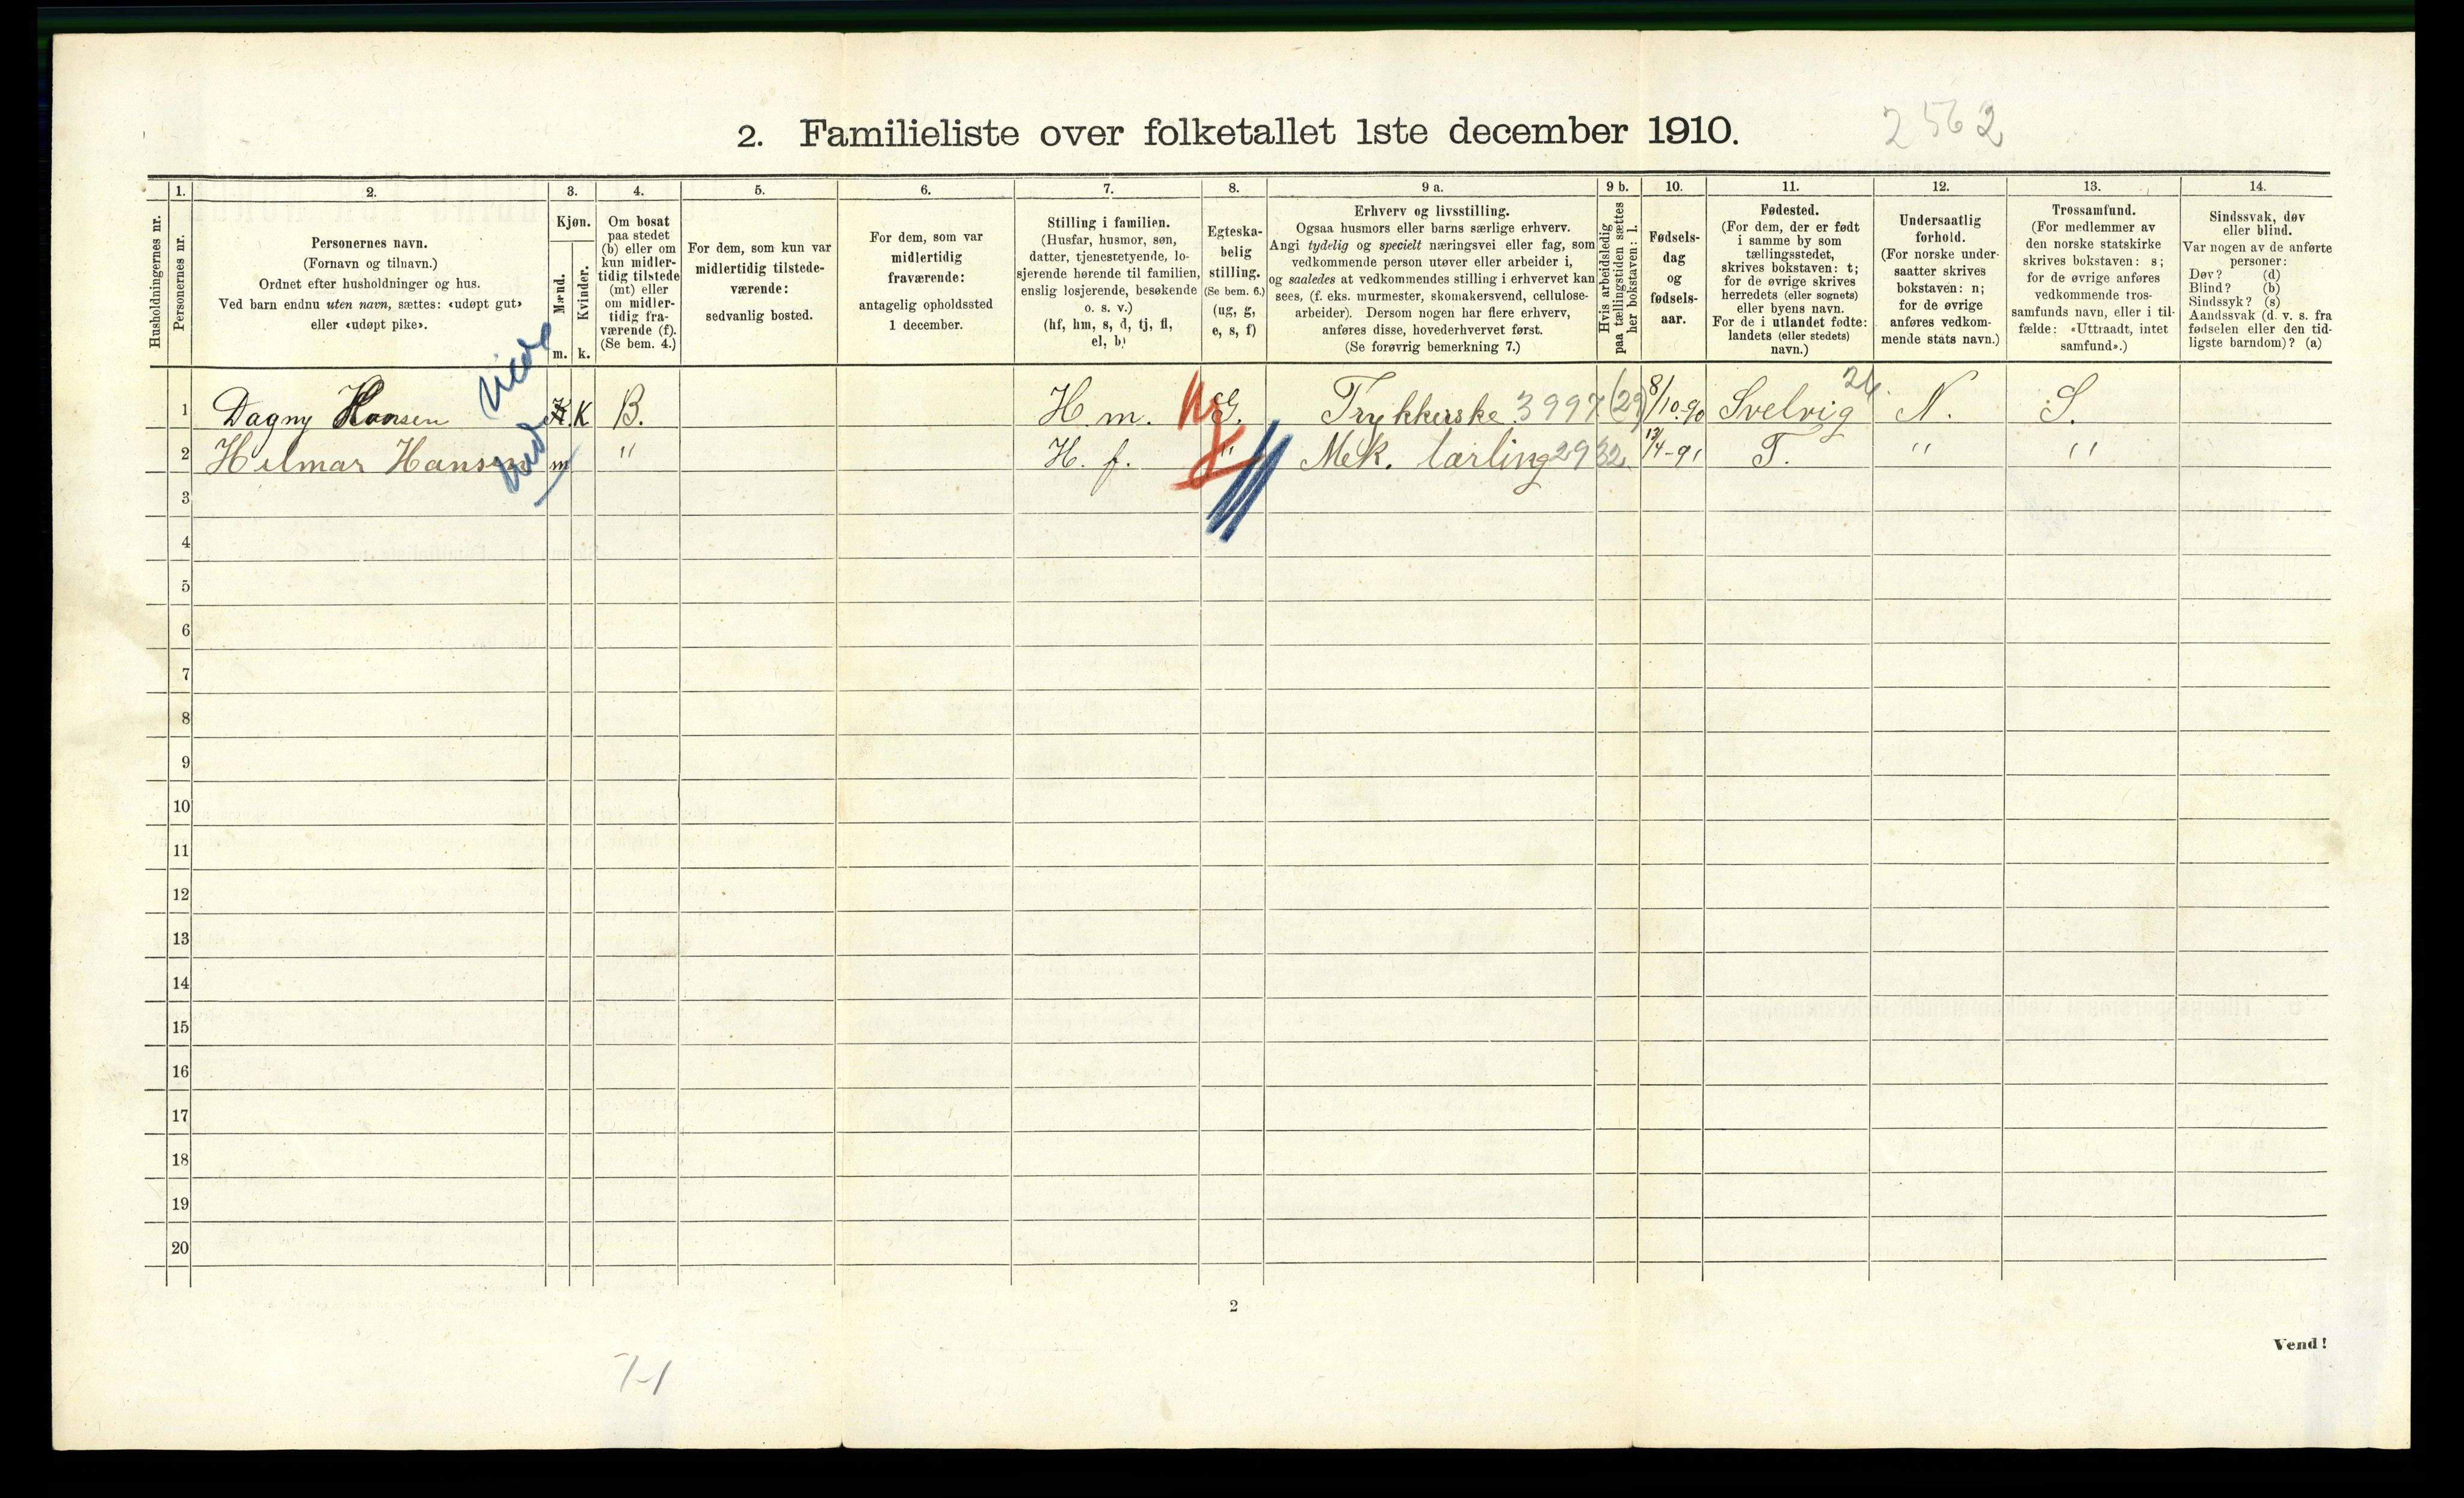 2. Familieliste over folketallet 1ste december 1910.
2562
Husholdningernes nr.
1.
Personernes nr.
2.
Personernes navn.
(Fornavn og tilnavn.)
Ordnet efter husholdninger og hus.
Ved barn endnu uten navn, sættes: «udøpt gut»
eller «udøpt pike».
3.
Kjøn.
Mænd.
m.
Kvinder.
k.
4.
Om bosat
paa stedet
(b) eller om
kun midler-
tidig tilstede
(mt) eller
om midler-
tidig fra-
værende (f).
(Se bem. 4.)
5.
For dem, som kun var
midlertidig tilstede-
værende:
sedvanlig bosted.
6.
For dem, som var
midlertidig
fraværende:
antagelig opholdssted
1 december.
7.
Stilling i familien.
(Husfar, husmor, søn,
datter, tjenestetyende, lo-
sjerende hørende til familien,
enslig losjerende, besøkende
o. s. v.)
(hf, hm, s, d, tj, fl,
el, b)
8.
Egteska-
belig
stilling.
(Se bem. 6.)
(ug, g,
e, s, f)
9 a.
Erhverv og livsstilling.
Ogsaa husmors eller barns særlige erhverv.
Angi tydelig og specielt næringsvei eller fag, som
vedkommende person utøver eller arbeider i,
og saaledes at vedkommendes stilling i erhvervet kan
sees, (f. eks. murmester, skomakersvend, cellulose-
arbeider). Dersom nogen har flere erhverv,
anføres disse, hovederhvervet først.
(Se forøvrig bemerkning 7.)
9 b.
Hvis arbeidsledig
paa tællingstiden sættes
her bokstaven: l.
10.
Fødsels-
dag
og
fødsels-
aar.
11.
Fødested.
(For dem, der er født
i samme by som
tællingsstedet,
skrives bokstaven: t;
for de øvrige skrives
herredets (eller sognets)
eller byens navn.
For de i utlandet fødte:
landets (eller stedets)
navn.)
12.
Undersaatlig
forhold.
(For norske under-
saatter skrives
bokstaven: n;
for de øvrige
anføres vedkom-
mende stats navn.)
13.
Trossamfund.
(For medlemmer av
den norske statskirke
skrives bokstaven: s;
for de øvrige anføres
vedkommende tros-
samfunds navn, eller i til-
fælde: «Uttraadt, intet
samfund».)
14.
Sindssvak, døv
eller blind.
Var nogen av de anførte
personer:
Døv? (d)
Blind? (b)
Sindssyk? (s)
Aandssvak (d. v. s. fra
fødselen eller den tid-
ligste barndom)? (a)
1 Dagny Hansen K B. H. m. G. Trykkerske 3997 (29) 8/10-90 Svelvig 26 N. S.
2 Hilmar Hansen m " H. f. " Mek. lærling 2932 13/4-91 T. " "
3
4
5
6
7
8
9
10
11
12
13
14
15
16
17
18
19
20
2
Vend!